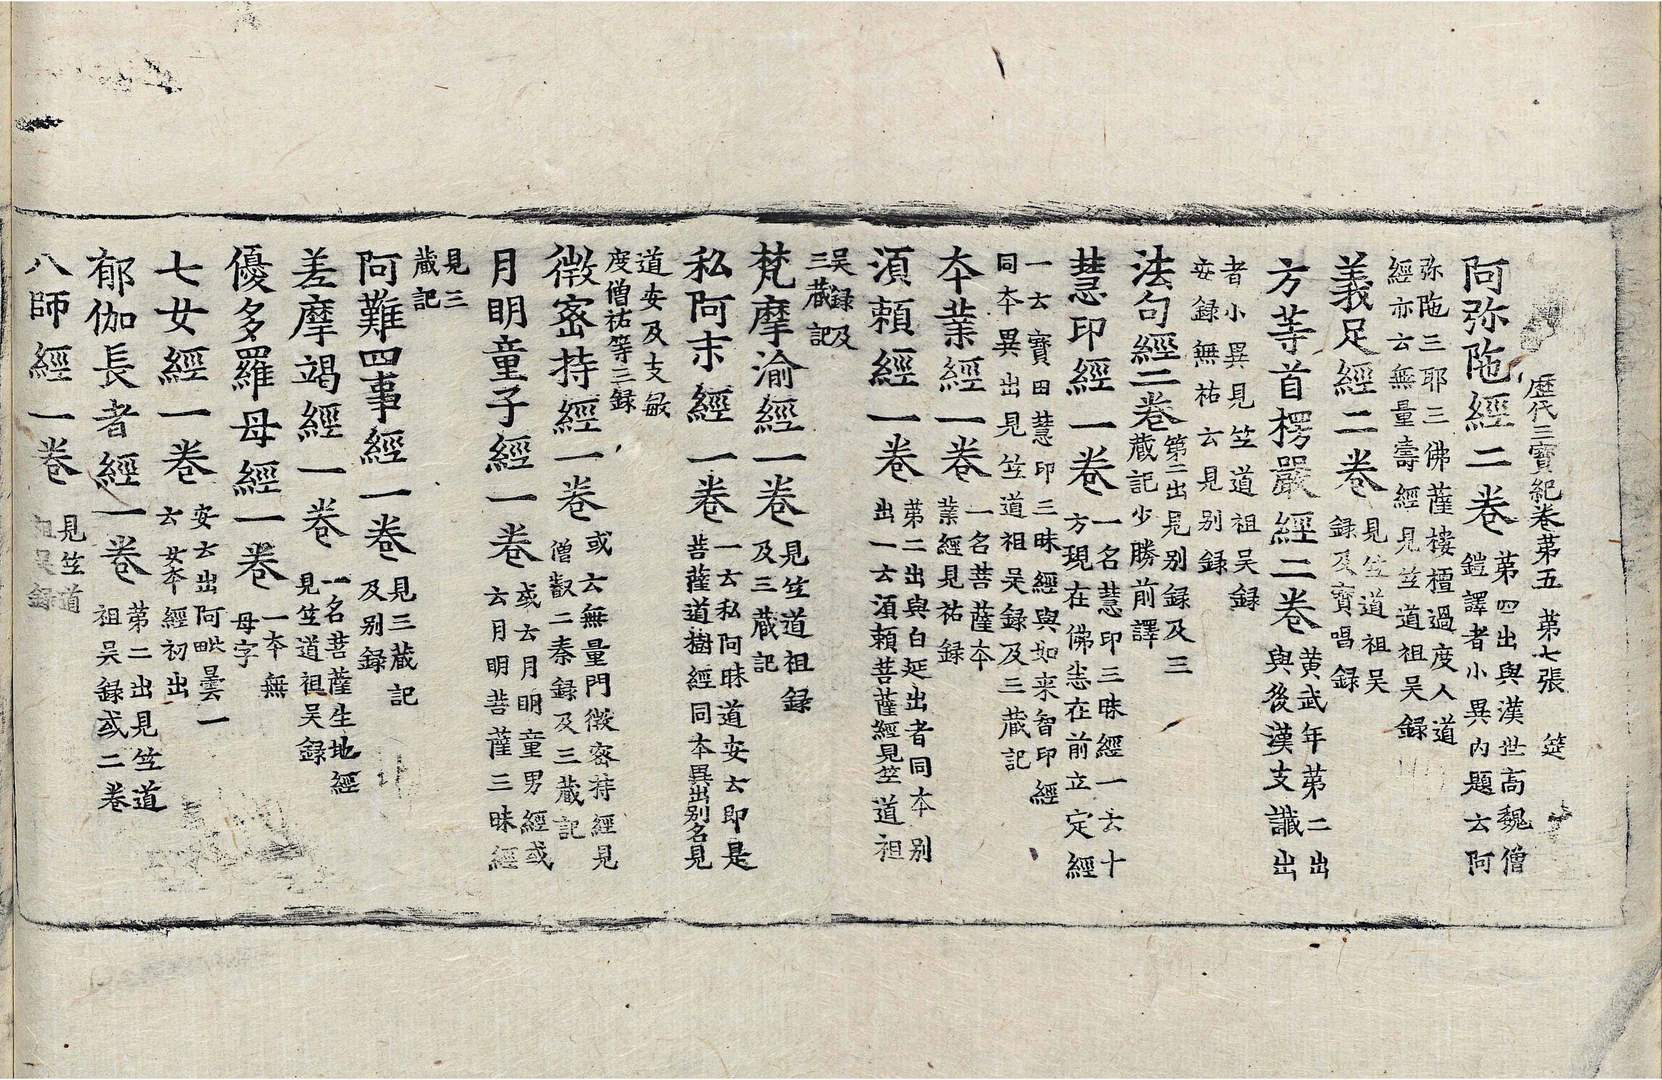 歷代三寶紀卷第五 第七張 筵
阿弥陁經二卷 第四出與漢世高魏僧
鎧譯者小異內題云阿
弥陁三耶三佛薩樓檀過度人道
經亦云無量壽經見竺道祖吳錄
義足經二卷 見竺道祖吳
錄及寶唱錄
方等首楞嚴經二卷 黃武年第二出
與後漢支讖出
者小異見竺道祖吳錄
安錄無祐云見别錄
法句經二卷 第二出見别錄及三
藏記少勝前譯
慧印經一卷 一名慧印三昧經一云十
方現在佛悉在前立定經
一云寶田慧印三昧經與如来智印經
同夲異出見竺道祖吳錄及三藏記
夲業經一卷 一名菩薩夲
業經見祐錄
湏頼經一卷 第二出與白延出者同夲别
出一云湏頼菩薩經見竺道祖
吳錄及
三藏記
梵摩渝經一卷 見竺道祖錄
及三藏記
私阿末經一卷 一云私阿昧道安云即是
菩薩道樹經同夲異出别名見
道安及支敏
度僧祐等三錄
微密持經一卷 或云無量門微密持經見
僧叡二秦錄及三藏記
月明童子經一卷 或云月明童男經或
云月明菩薩三昧經
見三
藏記
阿難四事經一卷 見三藏記
及别錄
差摩竭經一卷 一名菩薩生地經
見竺道祖吳錄
優多羅母經一卷 一夲無
母字
七女經一卷 安云出阿毗曇一
云女夲經初出
郁伽長者經一卷 第二出見竺道
祖吳錄或二卷
八師經一卷 見竺道
祖吳錄